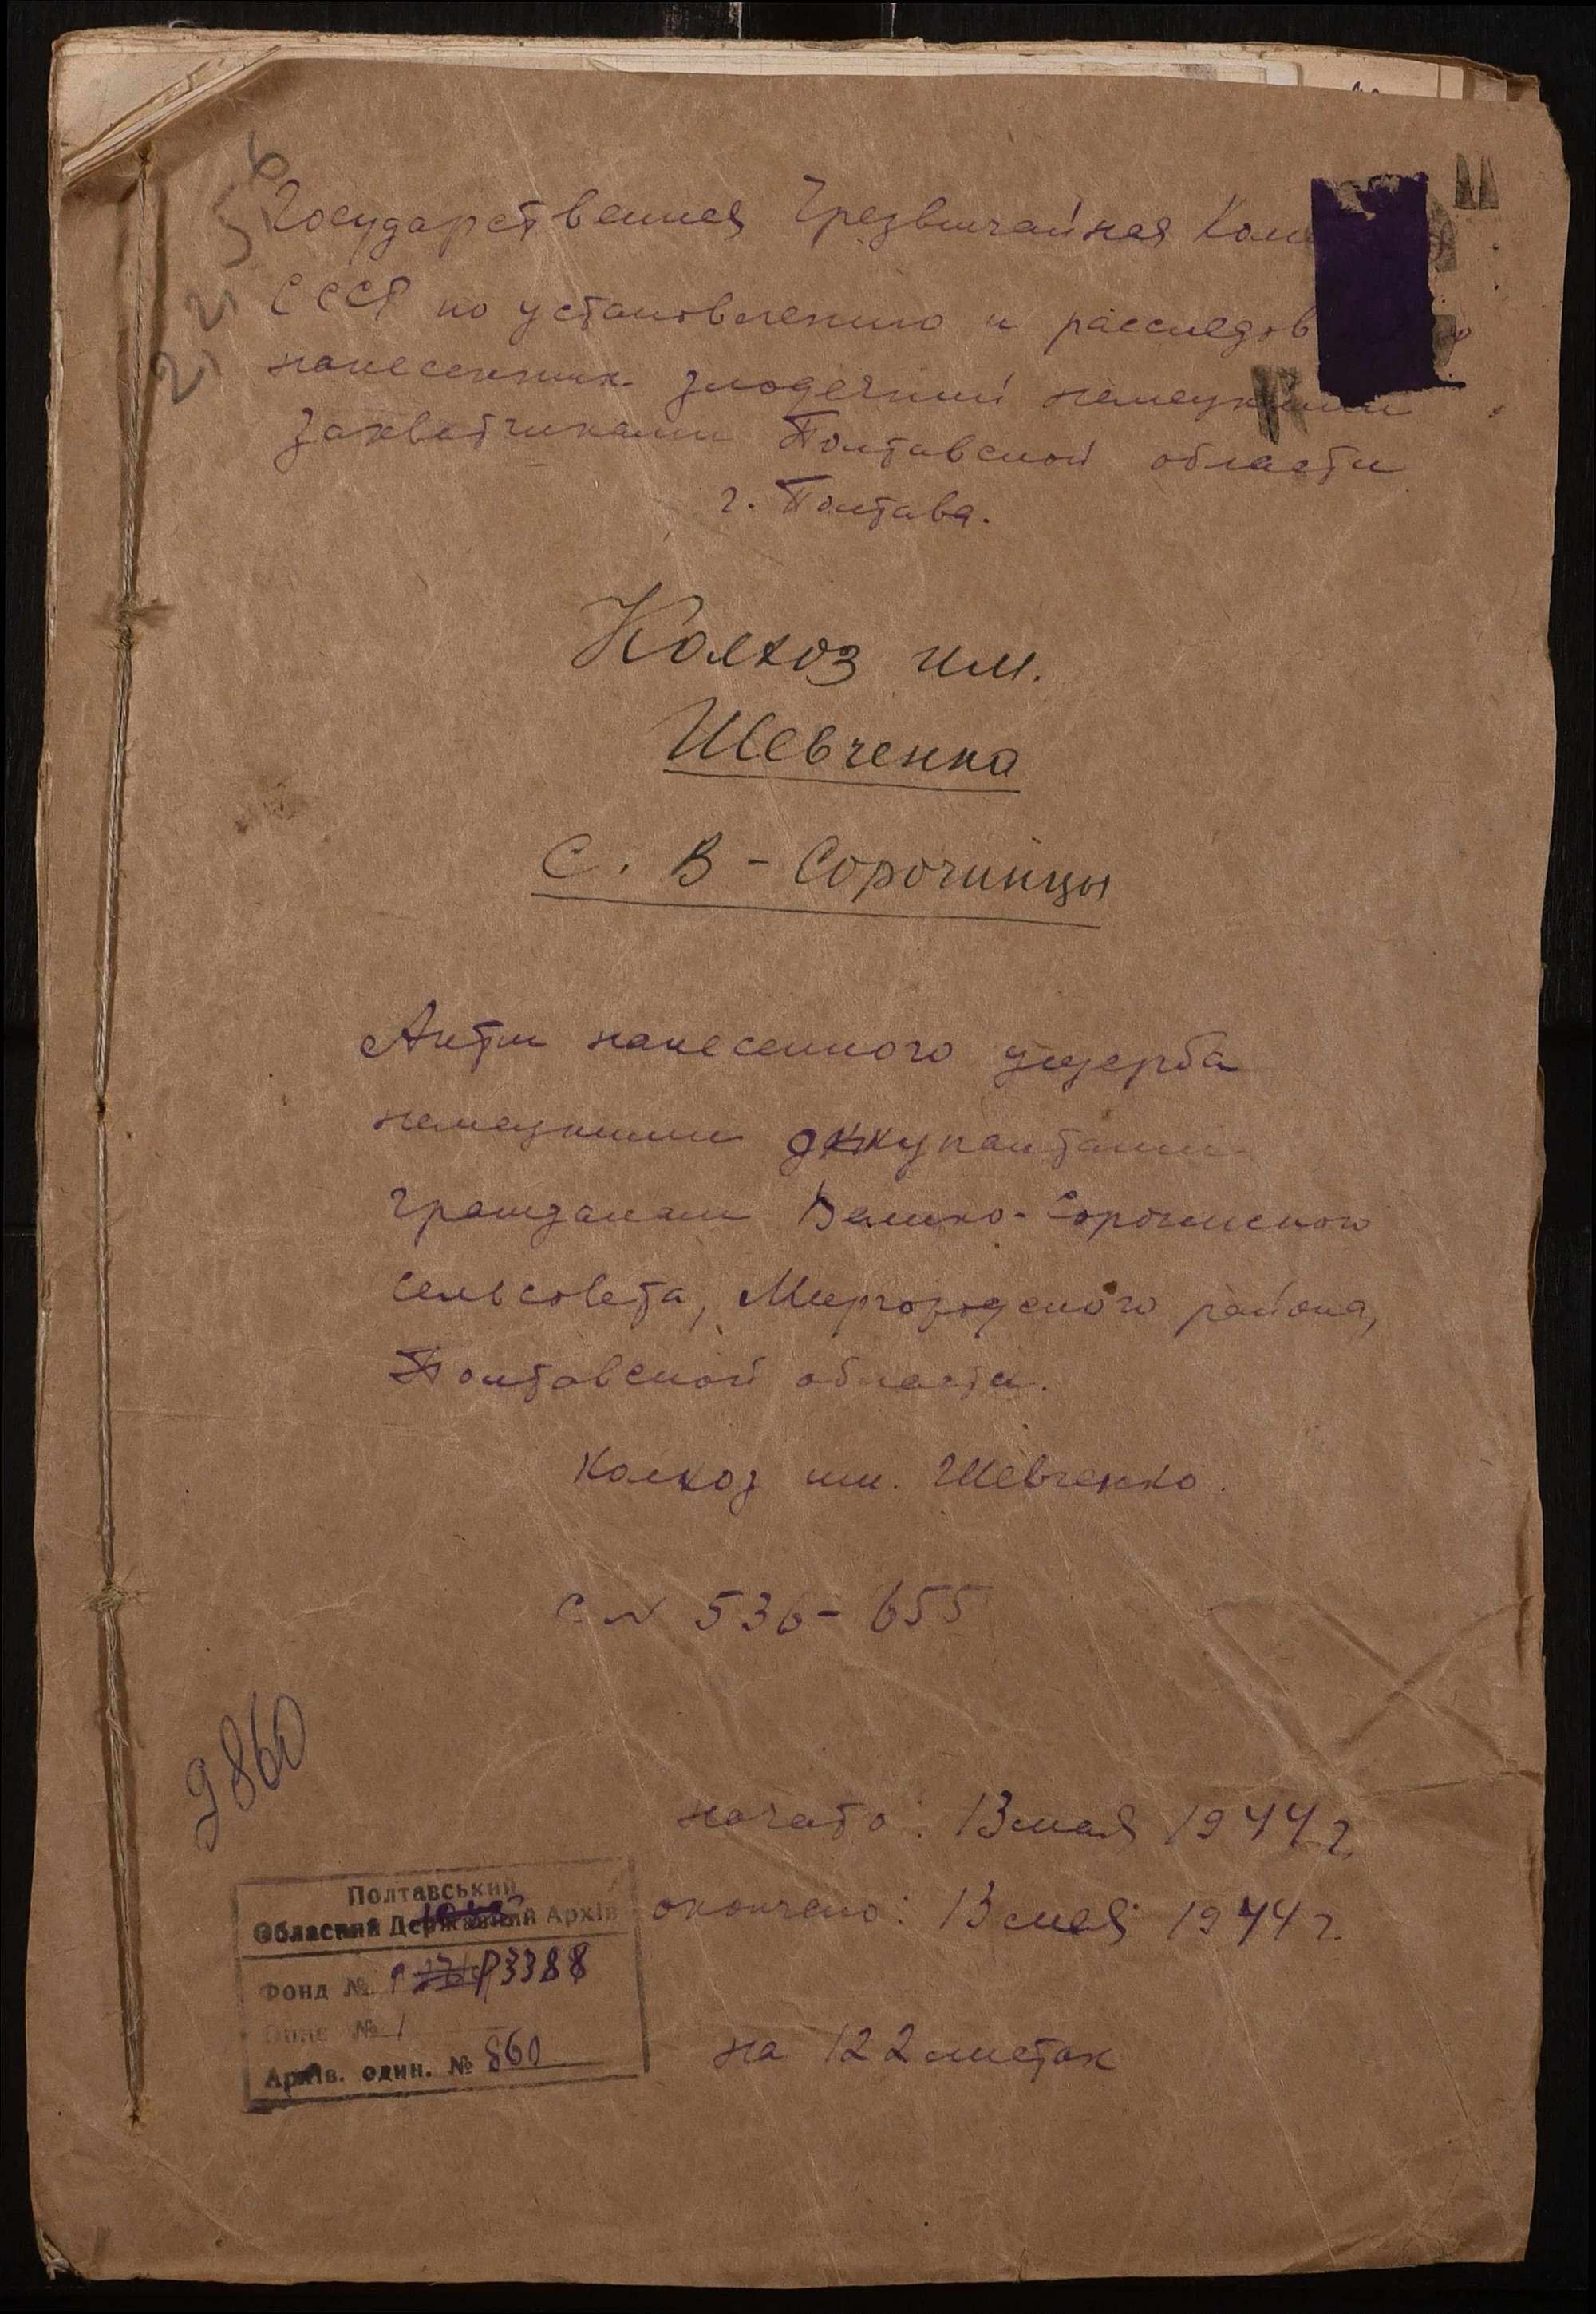 2256
Государственная Чрезвычайная Ком
СССР по установлению и расследов
нанесенных злодеяний немецкими
захватчиками Полтавской области
г. Полтава.
Колхоз им.
Шевченка
С. В-Сорочинцы
Акты нанесенного ущерба
немецкими оккупантами
гражданам Велико-Сорочинского
сельсовета, Миргородского района,
Полтавской области.
Колхоз им. Шевченко.
с № 536-655
9860
начато: 13 мая 1944 г.
окончено: 13 мая 1944 г.
на 122 листах
Полтавський
Обласний Державний Архів
Фонд № Р3388
Опис № 1
Архів. один. № 860